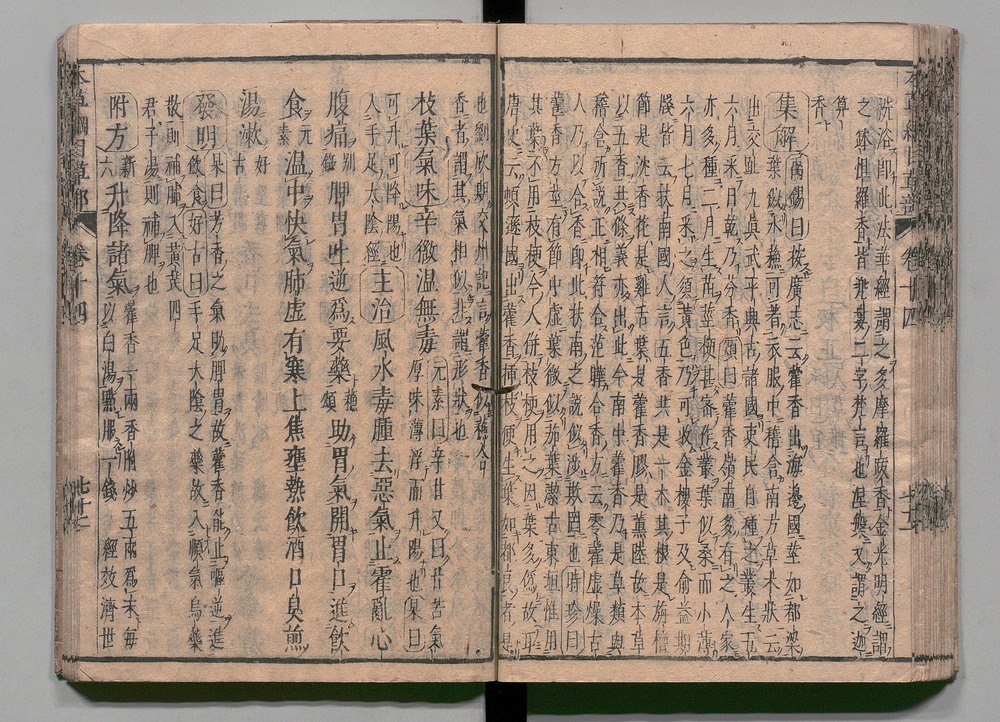 本草綱目草部 卷十四 七十一
洗浴即此法華經謂之多摩羅跋香金光明經謂
之鉢怛羅香皆兜婁二字梵言也涅槃又謂之迦
算香
集解 禹錫曰按廣志云藿香出海邊國莖如都梁
葉似水蘇可著衣服中嵇含南方草木狀云
出交趾九眞武平興古諸國吏民自種之叢生五
六月采日乾乃芬香頌曰藿香嶺南多有之人家
亦多種二月生苗莖梗甚密作叢葉似桑而小薄
六月七月采之須黃色乃可收金樓子及俞益期
牋皆云扶南國人言五香共是一木其根是旃檀
節是沈香花是雞舌葉是藿香膠是薰陸故本草
以五香共條義亦出此今南中藿香乃是草類與
嵇含所說正相符合范曄合香方云零藿虛燥古
人乃以合香即此扶南之說似涉欺罔也時珍曰
藿香方莖有節中虛葉微似茄葉潔古東垣惟用
其葉不用枝梗今人併枝梗用之因葉多僞故耳
唐史云頓遜國出藿香插枝便生葉如都良者是
也劉欣期交州記言藿香似蘇合
香者謂其氣相似非謂形狀也
枝葉氣味辛微温無毒 元素曰辛甘又曰甘苦氣
厚味薄浮而升陽也杲曰
可升可降陽也
入手足太陰經
主治風水毒腫去惡氣止霍亂心
腹痛 別錄 脾胃吐逆爲要藥 蘇頌 助胃氣開胃口進飲
食 元素 温中快氣肺虛有寒上焦壅熱飲酒口臭煎
湯漱 好古
發明 杲曰芳香之氣助脾胃故藿香能止嘔逆進
飲食好古曰手足太陰之藥故入順氣烏藥
散則補肺入黃芪四
君子湯則補脾也
附方 新六 升降諸氣 藿香一兩香附炒五兩爲末每
以白湯點服一錢 經效濟世
本草綱目草部 卷十四 七十二